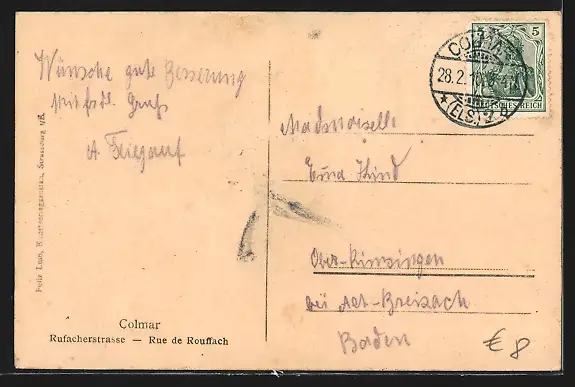 Wünsche gute Besserung
Mit frdl. Gruß
A.
Mademoiselle
Erna Kind
Ober-Rimsingen
bei Alt-Breisach
Baden
Colmar
Rufacherstrasse — Rue de Rouffach
Felix Luib, Kunstverlagsanstalt, Strassburg i/E.
5
COLMAR
28.2.10
* (ELS.) 2
DEUTSCHES REICH
€ 8